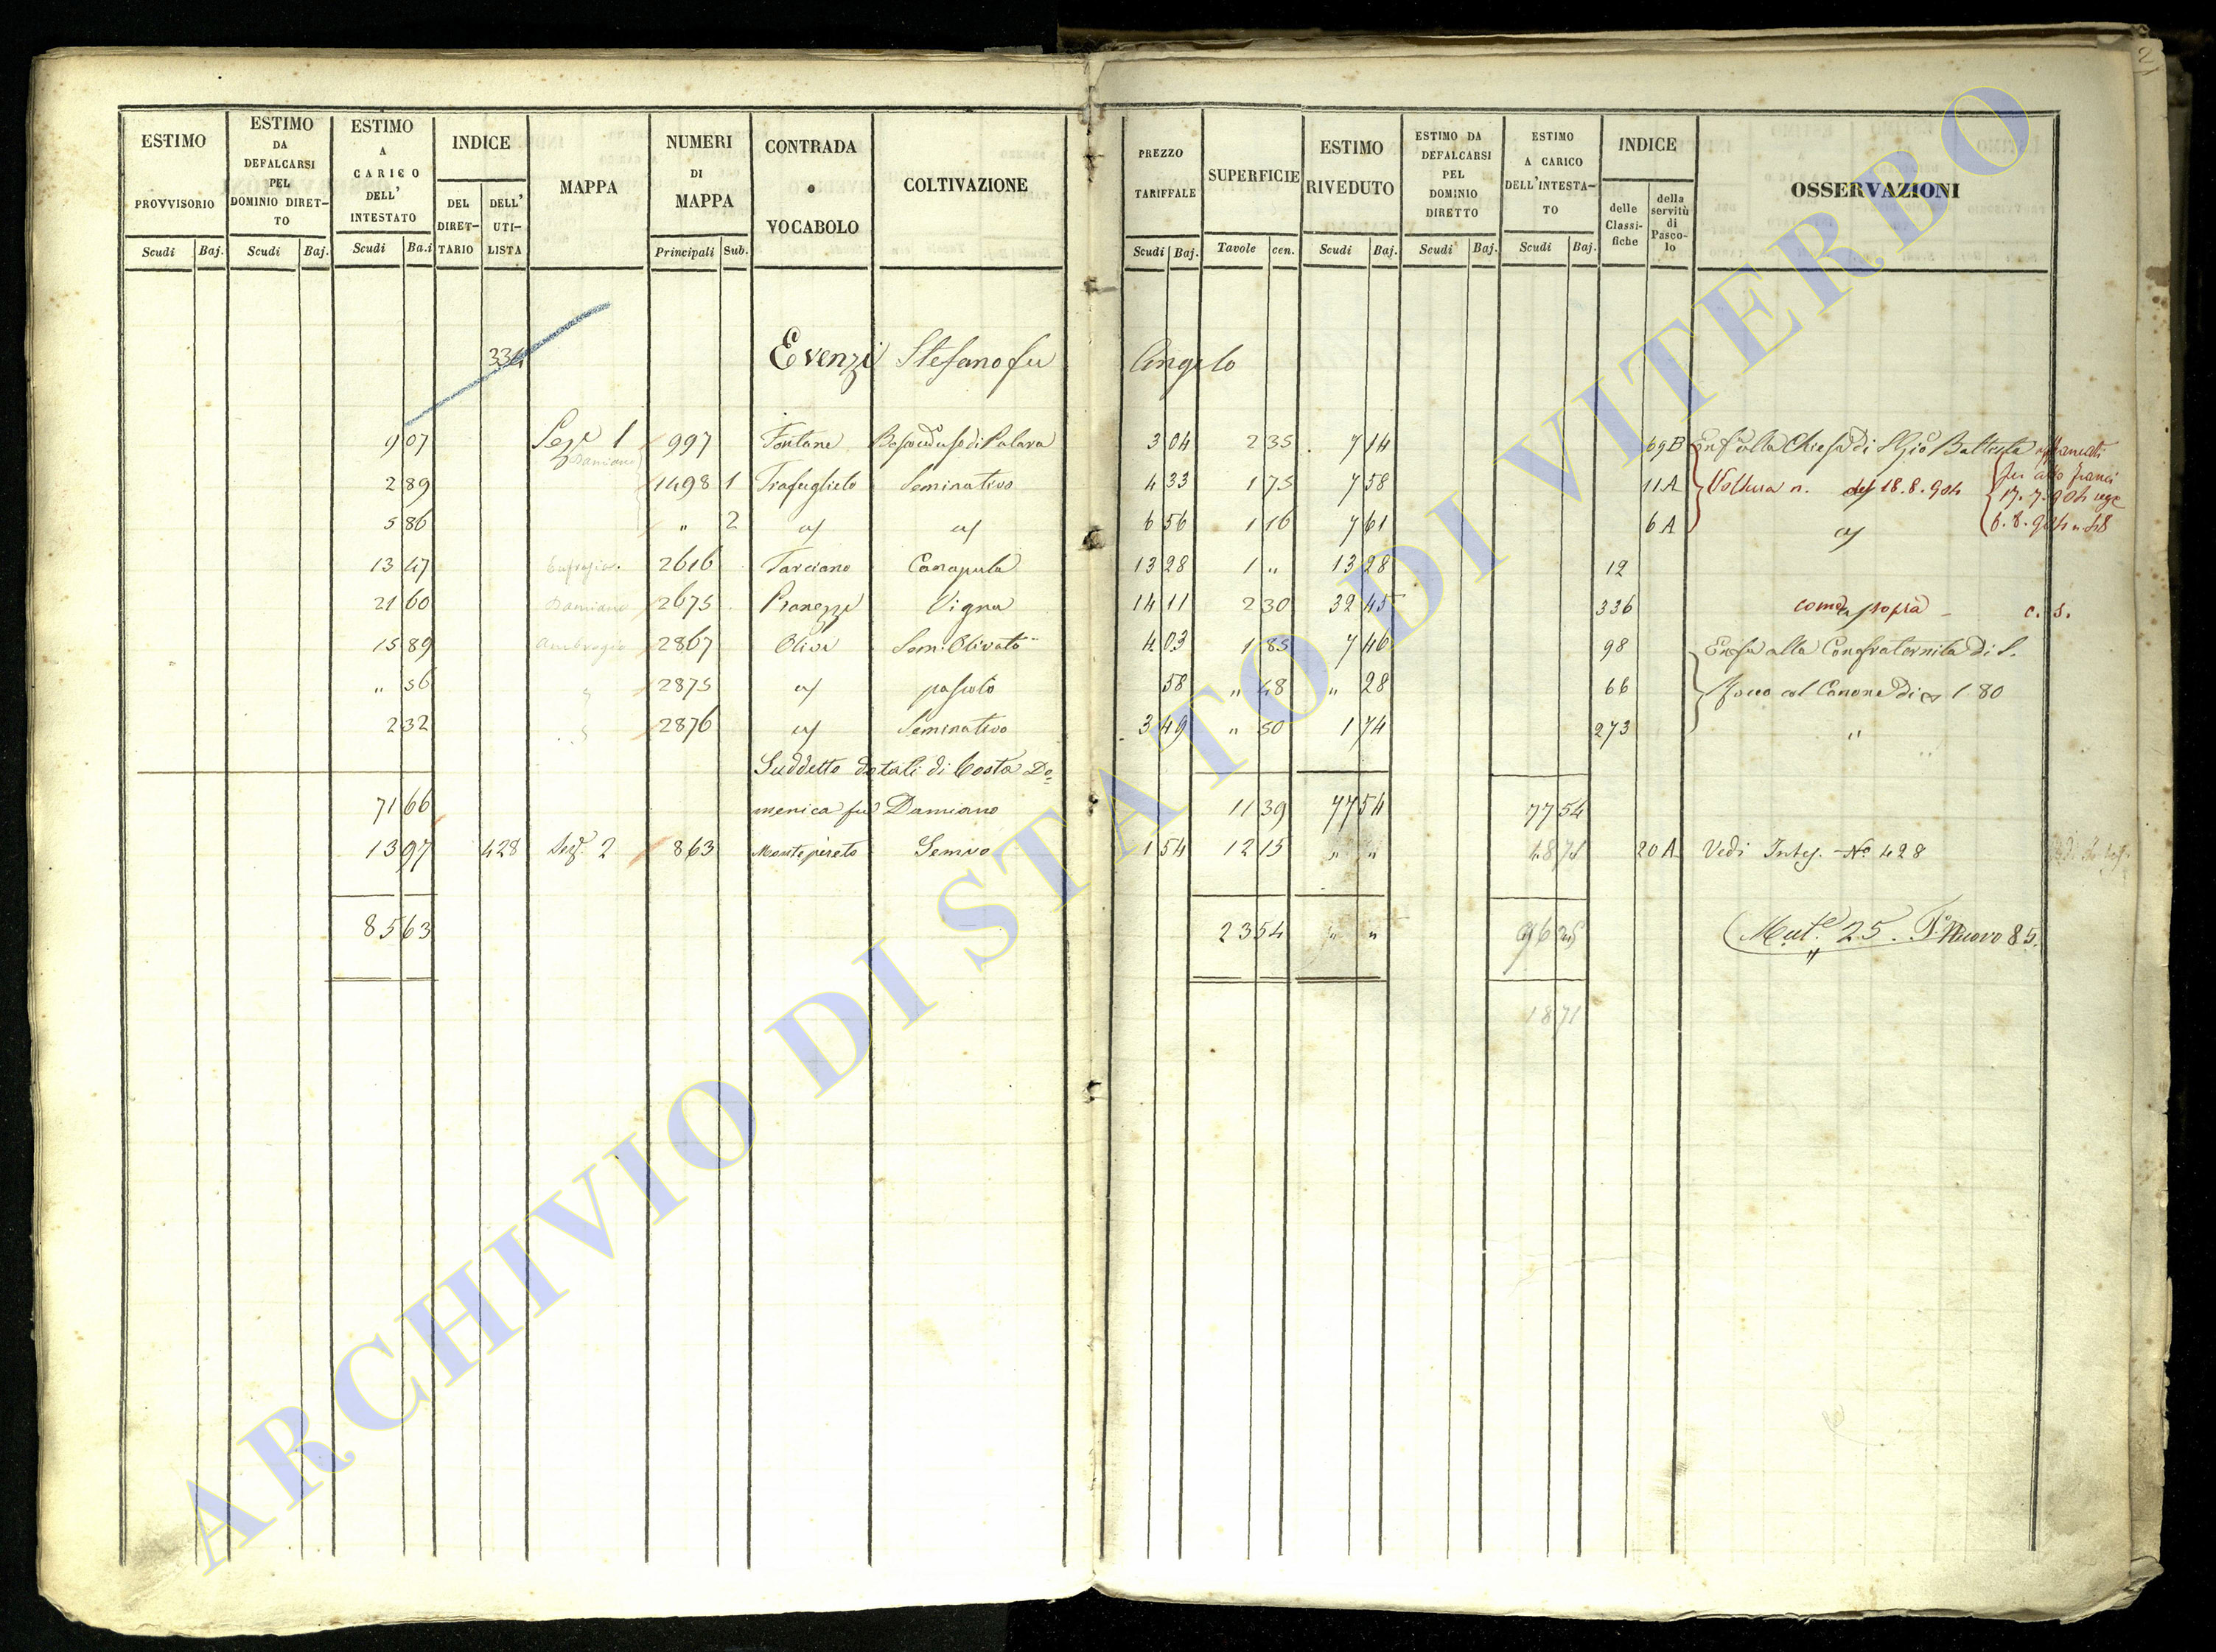 2
ESTIMO PROVVISORIO Scudi Baj.
ESTIMO DA DEFALCARSI PEL DOMINIO DIRETTO Scudi Baj.
ESTIMO A CARICO DELL' INTESTATO Scudi Ba.i
INDICE DEL DIRETTARIO DELL' UTILISTA
MAPPA
NUMERI DI MAPPA Principali Sub.
CONTRADA o VOCABOLO
COLTIVAZIONE
PREZZO TARIFFALE Scudi Baj.
SUPERFICIE Tavole cen.
ESTIMO RIVEDUTO Scudi Baj.
ESTIMO DA DEFALCARSI PEL DOMINIO DIRETTO Scudi Baj.
ESTIMO A CARICO DELL'INTESTATO Scudi Baj.
INDICE delle Classifiche della servitù di Pascolo
OSSERVAZIONI
334 Evenzi Stefano fu Angelo
9 07 Sez.e 1 Damiano 997 Fontane 3 04 2 35 7 14 69B Enfa alla Chiesa di S Gio Battista
2 89 1498 1 Seminativo 4 33 1 75 7 58 11A Voltura n. del 18.8.904
5 86 " 2 6 56 1 16 7 61 6A
13 47 2616 Tarciano Canapula 13 28 1 " 13 28 12
21 60 Damiano 2675 Vigna 14 11 2 30 32 45 336 come sopra c. s.
15 89 Ambrogio 2867 Olive Sem: Olivato 4 03 1 85 7 46 98 Enfa alla Confraternita di S.
" 56 2875 pascolo 58 " 48 " 28 66 al Canone di 1 80
2 32 2876 Seminativo 3 49 " 50 1 74 273 "
Suddetto dotali di Costa Do=
71 66 menica fu Damiano 11 39 77 54 77 54
13 97 428 Sez. 2 863 Montepereto Semvo 1 54 12 15 " " 18 71 20A Vedi Integ. No 428
85 63 23 54 " " 96 25 Mut.e 25. F. Nuovo 85.
18 71
ARCHIVIO DI STATO DI VITERBO